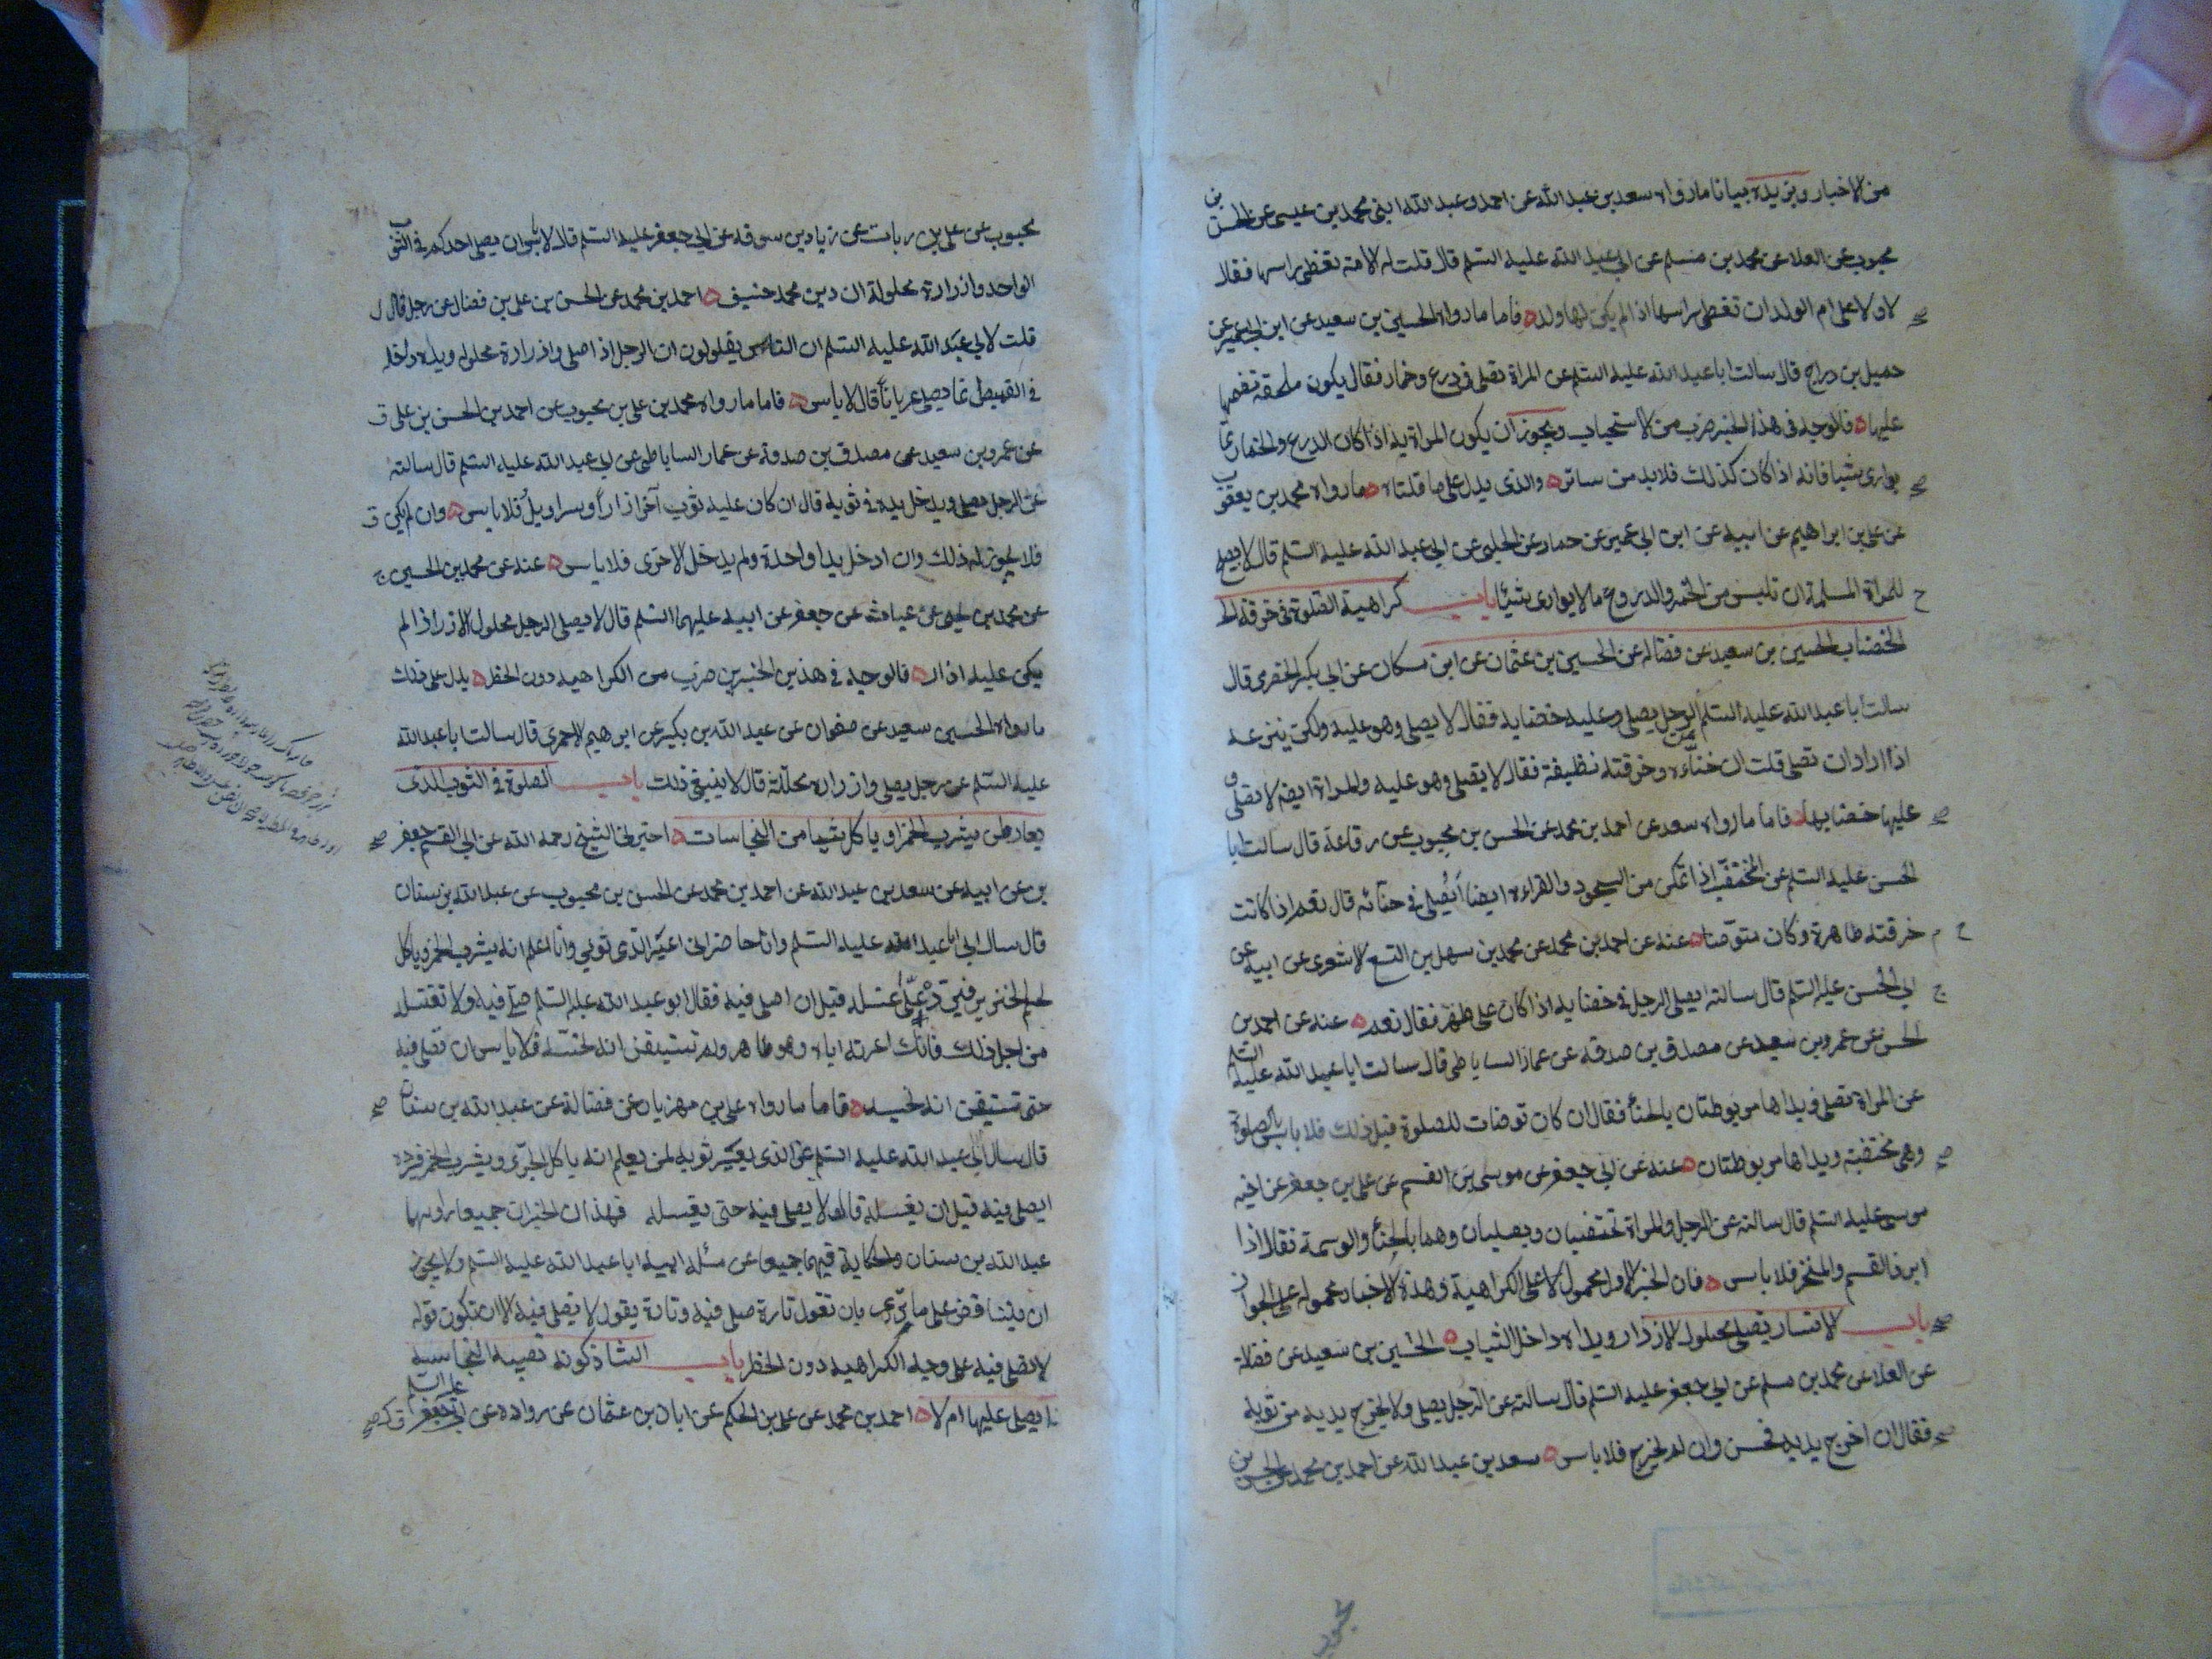 من الاخبار ويزيده بيانا ما رواه سعد بن عبد الله عن احمد وعبد الله ابنى محمد بن عيسى عن الحسن بن
محبوب عن العلا عن محمد بن مسلم عن ابى عبد الله عليه السلم قال قلت له الامة تغطى راسها فقال
لا ولا على ام الولد ان تغطى راسها اذا لم يكن لها ولد فاما ما رواه الحسين بن سعيد عن ابن ابى عمير عن
جميل بن دراج قال سالت ابا عبد الله عليه السلم عن المراة تصلى فى درع وخمار فقال يكون ملحفة تضمها
عليها فالوجه فى هذا الخبر ضرب من الاستحباب ويجوز ان يكون المراة به اذا كان الدرع والخمار مما
يوارى شيا فانه اذا كان كذلك فلا بد من ساتر والذى يدل على ما قلناه ما رواه محمد بن يعقوب
عن على بن ابراهيم عن ابيه عن ابن ابى عمير عن حماد عن الحلبى عن ابى عبد الله عليه السلم قال لا يصلح
للمراة المسلمة ان تلبس من الخمر والدروع ما لا يوارى شيئا باب كراهية الصلوة فى خرقة
الخضاب الحسين بن سعيد عن فضاله عن الحسين بن عثمان عن ابن مسكان عن ابى بكر الحضرمى قال
سالت ابا عبد الله عليه السلم الرجل يصلى وعليه خضابه فقال لا يصلى وهو عليه ولكن ينزعه
اذا اراد ان تصلى قلت ان حناءه وخرقته نظيفة فقال لا يصلى وهو عليه والمراة ايضا لا تصلى و
عليها خضابها فاما ما رواه سعد عن احمد بن محمد عن الحسن بن محبوب عن رفاعة قال سالت ابا
الحسن عليه السلم عن المختضب اذا تمكن من السجود والقراءة ايضا أيصلى فى حنائه قال نعم اذا كانت
خرقته طاهرة وكان متوضئا عنه عن احمد بن محمد عن محمد بن سهل بن اليسع الاشعرى عن ابيه عن
ابى الحسن عليه السلم قال سالته ايصلى الرجل فى خضابه اذا كان على طهر فقال نعم عنه عن احمد بن
الحسن عن عمرو بن سعيد عن مصدق بن صدقه عن عمار الساباطى قال سالت ابا عبد الله عليه السلم
عن المراة تصلى ويداها مربوطتان بالحنأ فقال ان كان توضات للصلوة قبل ذلك فلا باس بالصلوة
وهى مختضبة ويداها مربوطتان عنه عن ابى جعفر عن موسى بن القسم عن على بن جعفر عن اخيه
موسى عليه السلم قال سالته عن الرجل والمراة تختضبان ويصليان وهما بالحنأ والوسمة فقال اذا
ابرز الفم والمنخر فلا باس فان الخبر الاول محمول على الكراهية وهذه الاخبار محمولة على الجواز
باب الانسان يصلى محلول الازرار ويداه داخل الثياب الحسين بن سعيد عن فضالة
عن العلا عن محمد بن مسلم عن ابى جعفر عليه السلم قال سالته عن الرجل يصلى ولا يخرج يديه من ثوبه
فقال ان اخرج يديه فحسن وان لم يخرج فلا باس سعد بن عبد الله عن احمد بن محمد عن الحسن بن
محبوب
محبوب عن على بن رباب عن زياد بن سوقه عن ابى جعفر عليه السلم قال لا باس ان يصلى احدكم فى الثوب
الواحد وازراره محلولة ان دين محمد حنيف احمد بن محمد عن الحسن بن على بن فضال عن رجل قال
قلت لابى عبد الله عليه السلم ان الناس يقولون ان الرجل اذا صلى وازراره محلولة ويداه داخلة
فى القميص انما يصلى عريانا قال لا باس فاما ما رواه محمد بن على بن محبوب عن احمد بن الحسن بن على
عن عمرو بن سعيد عن مصدق بن صدقة عن عمار الساباطى عن ابى عبد الله عليه السلم قال سالته
عن الرجل يصلى ويدخل يديه فى ثوبه قال ان كان عليه ثوب آخر ازار او سراويل فلا باس وان لم يكن
فلا يجوز له ذلك وان ادخل يدا واحدة ولم يدخل الاخرى فلا باس عنه عن محمد بن الحسين
عن محمد بن يحيى عن غياث عن جعفر عن ابيه عليهما السلم قال لا يصلى الرجل محلول الازرار اذا لم
يكن عليه ازار فالوجه فى هذين الخبرين ضرب من الكراهيه دون الحظر يدل على ذلك
ما رواه الحسين سعيد عن صفوان عن عبد الله بن بكير عن ابرهيم الاحمرى قال سالت ابا عبد الله
عليه السلم عن رجل يصلى وازراره محللة قال لا ينبغى ذلك باب الصلوة فى الثوب الذى
يعار لمن يشرب الخمر او ياكل شيا من النجاسات اخبرنى الشيخ رحمه الله عن ابى القسم جعفر
بن عن ابيه عن سعد بن عبد الله عن احمد بن محمد عن الحسن بن محبوب عن عبد الله بن سنان
قال سال ابى ابا عبد الله عليه السلم وانا حاضر انى اعير الذمى ثوبى وانا اعلم انه يشرب الخمر وياكل
لحم الخنزير فيرده على أغسله قبل ان اصلى فيه فقال ابو عبد الله عليه السلم صل فيه ولا تغسله
من اجل ذلك فانك اعرته اياه وهو طاهر ولم تستيقن انه نجسه فلا باس ان تصلى فيه
حتى تستيقن انه نجسه فاما ما رواه على بن مهزيار عن فضالة عن عبد الله بن سنان
قال سال ابى عبد الله عليه السلم عن الذى يعير ثوبه لمن يعلم انه ياكل الجرى ويشرب الخمر فيرده
ايصلى فيه قبل ان يغسله قال لا يصلى فيه حتى يغسله فهذان الخبران جميعا راويهما
عبد الله بن سنان والحكاية فيهما جميعا عن مسئلة ابيه ابا عبد الله عليه السلم ولا يجوز
ان يتناقض على ما ترى بان تقول تارة صل فيه وتارة يقول لا تصلى فيه الا ان تكون قوله
لا تصلى فيه على وجه الكراهيه دون الحظر باب الشاذكونه تصيبه النجاسه
ايصلى عليها ام لا احمد بن محمد عن على بن الحكم عن ابان بن عثمان عن رواه عن ابى جعفر عليه السلم